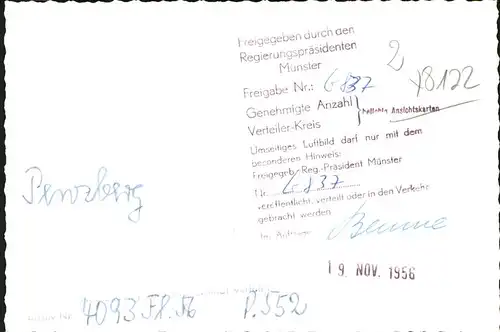 Freigegeben durch den
Regierungspräsidenten
Münster
2
Freigabe Nr.: G 837
18122
Genehmigte Anzahl
Ansichtskarten
Verteiler-Kreis
Umseitiges Luftbild darf nur mit dem
besonderen Hinweis:
Freigegeb. Reg.-Präsident Münster
Nr. G 837
veröffentlicht, verteilt oder in den Verkehr
gebracht werden
Im Auftrag
Penzberg
19. NOV. 1956
4093 P. 552